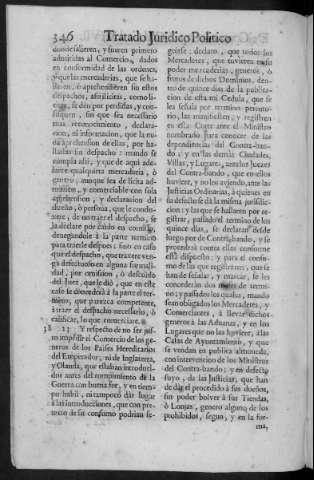 346 Tratado Juridico Politico
donde salieren, y fueren primero
admitidas al Comercio, dados
en conformidad de las ordenes,
y que las mercaderias, que se ha-
llaren, ò aprehendieren sin estos
despachos, assisticias, como li-
citas, se dèn por perdidas, y con-
fisquen, sin que sea necessario
mas reconocimiento, declara-
cion, ni informacion, que la nu-
da aprehension de ellas, por ha-
llarlas sin despacho: mando se
cumpla assi, y que de aqui ade-
lante qualquiera mercaduria, ò
genero, aunque sea de licita ad-
mission, y comerciable con sola
aprehension, y declaracion del
dueño, ò persona, que le condu-
xere, de no traer el despacho, se
la declare por caìdo en comisso,
denegandole à la parte termino
para traerle despues; sino en caso
que el despacho, que traxere ven-
ga defectuoso en alguna formali-
dad, por omission, ò descuido
del Juez, que le diò, que en este
caso se concederà à la parte el ter-
mino, que parezca competente,
à traer el despacho necessario, ò
calificar, lo que conuiniere.
38 23 Y respecto de no ser jus-
to impedir el Comercio de los ge-
neros de los Paises Hereditarios
del Emperador, ni de Inglaterra,
y Olanda, que estaban introduci-
dos antes del rompimiento de la
Guerra con buena fee, y en tiem-
po habil, ni tampoco dàr lugar
à las introducciones, que con pre-
texto de su consumo podrian se-
guirse: declaro, que todos los
Mercaderes, que tuvieren en su
poder mercaderias, generos, ò
frutos de dichos Dominios, den-
tro de quince dias de la publica-
cion de esta mi Cedula, que se
les señala por termino perento-
rio, las manifiesten, y registren
en esta Corte ante el Ministro
nombrado para conocer de las
dependiencias del Contra-ban-
do, y en las demàs Ciudades,
Villas, y Lugares, ante los Jueces
del Contra-bando, que en ellos
huviere, y no los aviendo, ante las
Justicias Ordinarias, à quienes en
su defecto se dà la misma jurisdic-
cion: y las que se hallaren por re-
gistrar, passado el termino de los
quince dias, se declaran desde
luego por de Contra-bando, y se
procederà contra ellas conforme
està dispuesto: y para el consu-
mo de las que registraren, que se
han de señalar, y marcar, se les
concederàn dos meses de termi-
no; y passados los quales, mando
sean obligados los Mercaderes, y
Comerciantes, à llevar dichos
generos à las Aduanas, y en los
Lugares que no las huviere, à las
Casas de Ayuntamiento, y que
se vendan en publica almoneda,
con intervencion de los Ministros
del Contra-bando; y en defecto
suyo, de las Justicias, que han
de dàr el procedido à sus dueños,
sin poder bolver à sus Tiendas,
ò Lonjas, genero alguno de los
prohibidos, segun, y en la for-
ma,